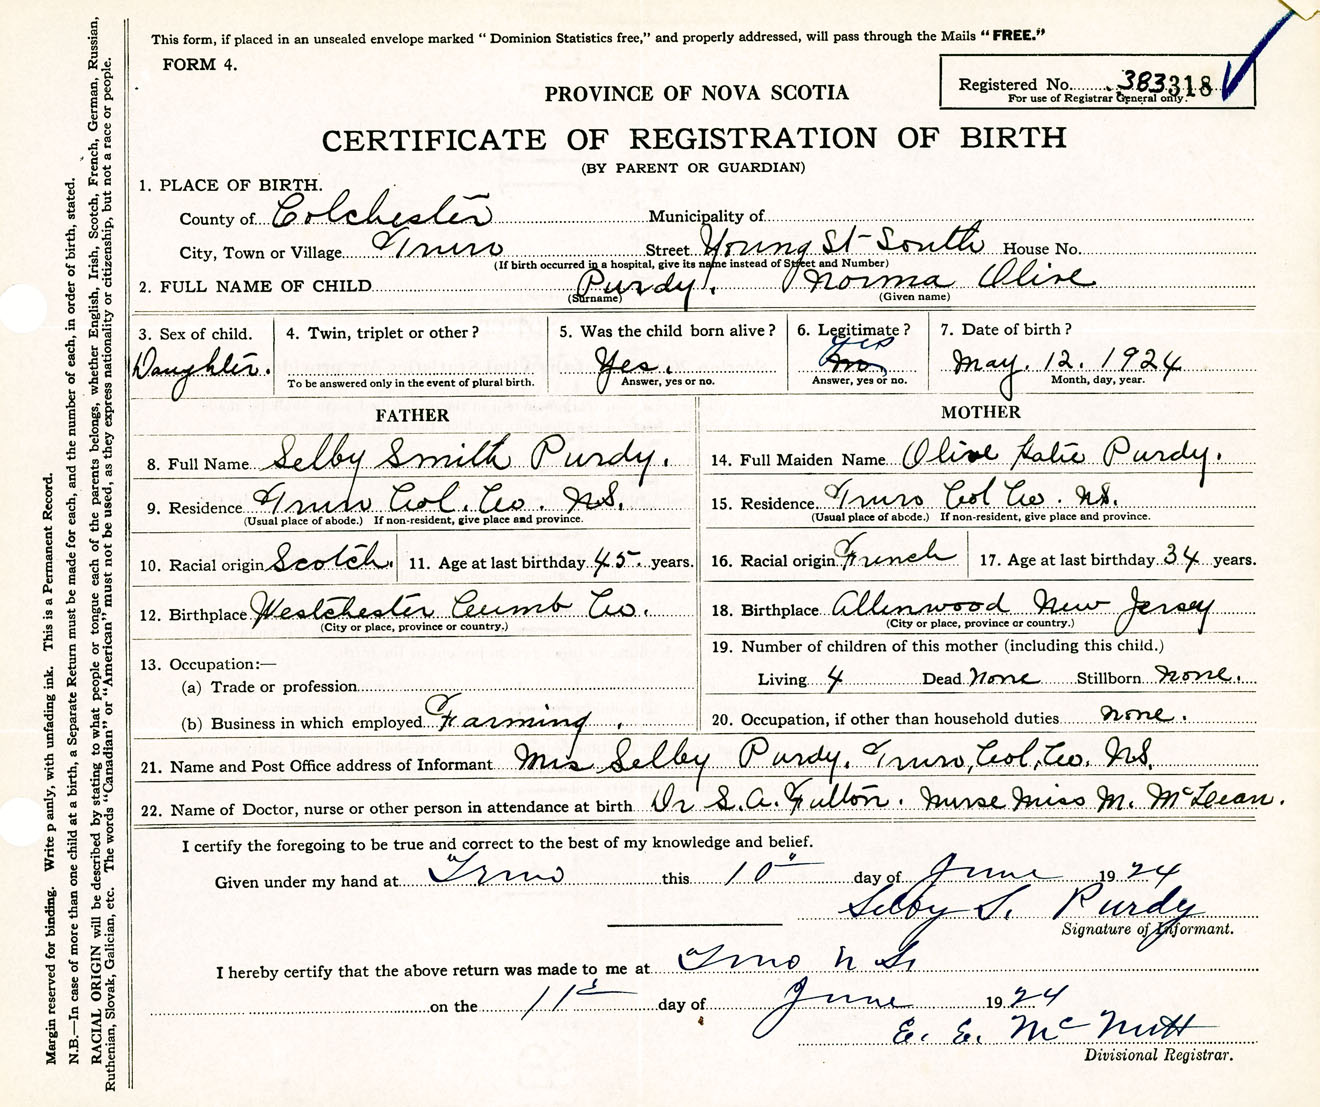 This form, if placed in an unsealed envelope marked “ Dominion Statistics free,” and properly addressed, will pass through the Mails “ FREE.”
FORM 4.
Registered No. 383318
For use of Registrar General only.
PROVINCE OF NOVA SCOTIA
CERTIFICATE OF REGISTRATION OF BIRTH
(BY PARENT OR GUARDIAN)
1. PLACE OF BIRTH.
County of Colchester Municipality of
City, Town or Village Truro Street Young St- South House No.
(If birth occurred in a hospital, give its name instead of Street and Number)
2. FULL NAME OF CHILD Purdy. Norma Olive
(Surname) (Given name)
3. Sex of child. 4. Twin, triplet or other ? 5. Was the child born alive ? 6. Legitimate ? 7. Date of birth ?
Yes
Daughter. Yes. no May. 12. 1924
To be answered only in the event of plural birth. Answer, yes or no. Answer, yes or no. Month, day, year.
FATHER MOTHER
8. Full Name Selby Smith Purdy. 14. Full Maiden Name Olive Katie Purdy.
9. Residence Truro Col. Co. N.S. 15. Residence Truro Col Co. N.S.
(Usual place of abode.) If non-resident, give place and province. (Usual place of abode.) If non-resident, give place and province.
10. Racial origin Scotch. 11. Age at last birthday 45 years. 16. Racial origin French 17. Age at last birthday 34 years.
12. Birthplace Westchester Cumb Co. 18. Birthplace Allenwood New Jersey
(City or place, province or country.) (City or place, province or country.)
13. Occupation:— 19. Number of children of this mother (including this child.)
(a) Trade or profession Living 4 Dead None Stillborn None.
(b) Business in which employed Farming. 20. Occupation, if other than household duties none.
21. Name and Post Office address of Informant Mrs Selby Purdy. Truro, Col, Co. N.S.
22. Name of Doctor, nurse or other person in attendance at birth Dr S. A. Fulton. Nurse Miss M. McLean.
I certify the foregoing to be true and correct to the best of my knowledge and belief.
Given under my hand at Truro this 10" day of June 1924
Selby S. Purdy
Signature of Informant.
I hereby certify that the above return was made to me at Truro N S.
on the 11th day of June 1924
E. E. McNutt
Divisional Registrar.
Margin reserved for binding. Write plainly, with unfading ink. This is a Permanent Record.
N.B.—In case of more than one child at a birth, a Separate Return must be made for each, and the number of each, in order of birth, stated.
RACIAL ORIGIN will be described by stating to what people or tongue each of the parents belongs, whether English, Irish, Scotch, French, German, Russian,
Ruthenian, Slovak, Galician, etc. The words “Canadian” or “American” must not be used, as they express nationality or citizenship, but not a race or people.